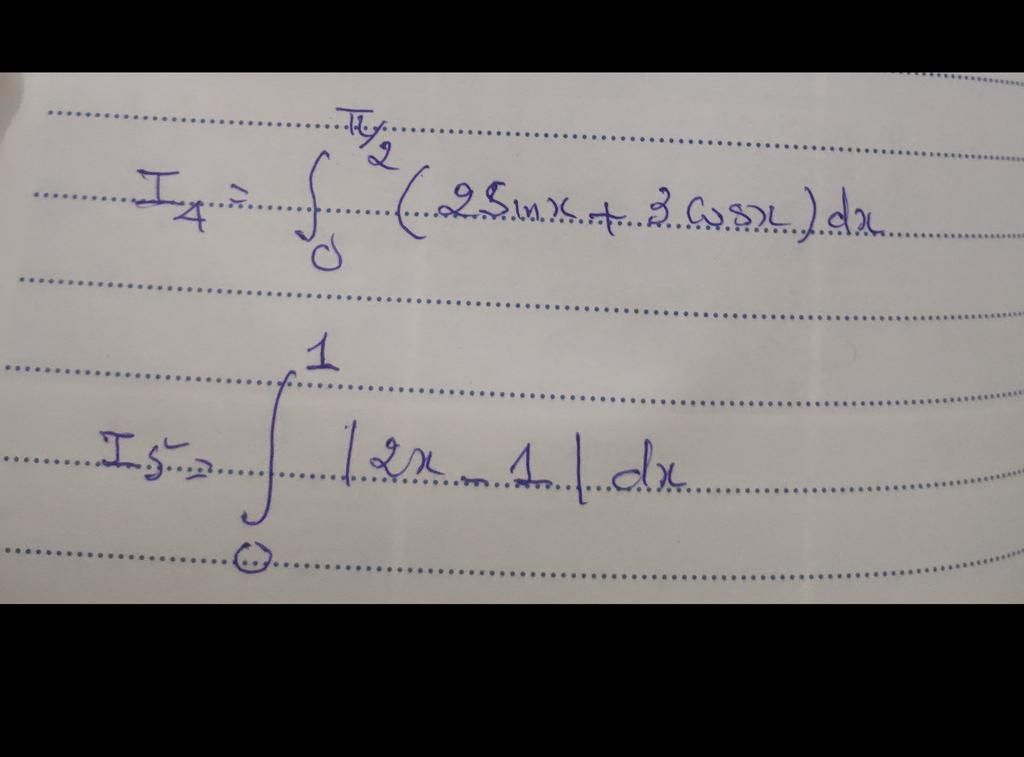 I₄ = ∫₀^{π/2} (2 Sin x + 3 cos x) dx
I₅ = ∫₀^1 |2x - 1| dx